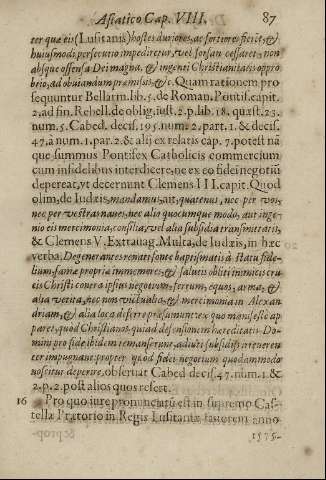 Asiatico Cap. VIII. 87
ter quæ eis (Lusitanis) hostes duriores, ac fortiores fierēt, &
huiusmodi persecutio impediretur, vel forsan cessaret, non
absque offensa Dei magna, & ingenti Christianitatis oppro
brio, ad obuiandum præmissis, &c. Quam rationem pro
sequuntur Bellarm. lib. 5. de Roman. Pontif. capit.
2. ad fin. Rebell. de oblig. iust. 2. p. lib. 18. quæst. 23.
num. 5. Cabed. decis. 195. num. 2. part. 1. & decis.
47. à num. 1. par. 2. & alij ex relatis cap. 7. potest nā
que summus Pontifex Catholicis commercium
cum infidelibus interdicere, ne ex eo fidei negotiū
depereat, vt decernunt Clemens III. capit. Quod
olim, de Iudæis, mandamus, ait, quatenus, nec per vos,
nec per vestras naues, nec alio quocumque modo, aut inge-
nio eis mercimonia, consilia, vel alia subsidia transmittatis,
& Clemens V. Extrauag. Multa, de Iudæis, in hæc
verba, Degenerantes renati fonte baptismatis à statu fide-
lium, famæ propriæ immemores, & salutis obliti inimicis cru
cis Christi contra ipsius negotium ferrum, equos, arma, &
alia vetita, nec non victualia, & mercimonia in Alexan
driam, & alia loca differre præsumunt ex quo manifestè ap
paret, quod Christianos, qui ad defensionem hæreditatis Do-
mini pro fide ibidem remanserunt, adiutis subsidijs irreueren
ter impugnant: propter quod fidei negotium quodammodo
noscitur deperire, obseruat Cabed. decis. 47. num. 1. &
2. p. 2. post alios quos refert.
16 Pro quo iure pronunciatū est in supremo Cas-
tellæ Prætorio in Regis Lusitaniæ fauorem anno
1575.